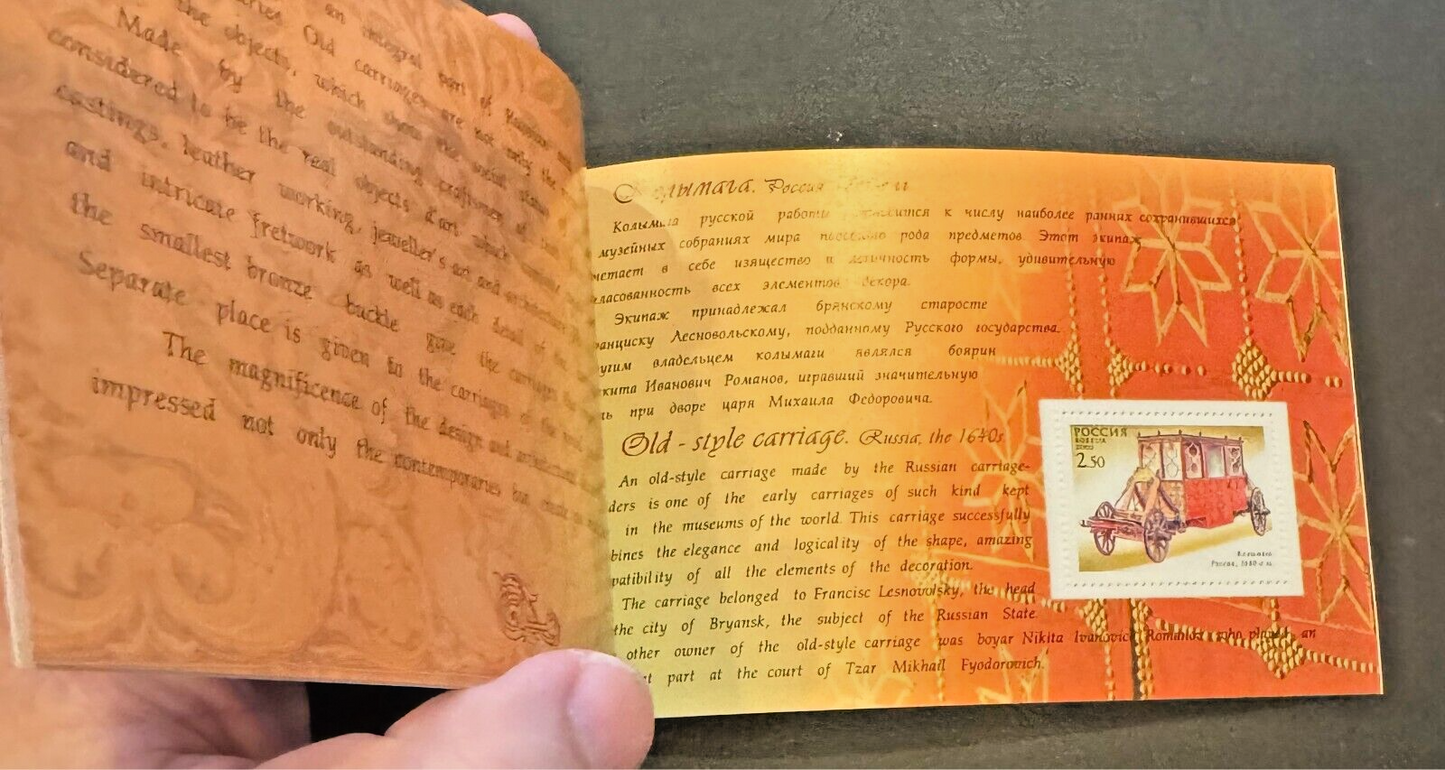 an integral part of
Old carriages are not only the
the objects, which show the social status
Made by the outstanding craftsmen
considered to be the real objects d'art, which
castings, leather working, jeweller's art and
and intricate fretwork as well as each detail of the
the smallest bronze buckle give the carriages
Separate place is given to the carriages of the
The magnificence of the design and
impressed not only the contemporaries but
Колымага. Россия
Колымага русской работы относится к числу наиболее ранних сохранившихся
музейных собраниях мира подобного рода предметов. Этот экипаж
четает в себе изящество и логичность формы, удивительную
гласованность всех элементов декора.
Экипаж принадлежал брянскому старосте
анциску Лесновольскому, подданному Русского государства.
угим владельцем колымаги являлся боярин
кита Иванович Романов, игравший значительную
ль при дворе царя Михаила Федоровича.
Old - style carriage. Russia, the 1640s
An old-style carriage made by the Russian carriage-
ders is one of the early carriages of such kind kept
in the museums of the world. This carriage successfully
bines the elegance and logicality of the shape, amazing
patibility of all the elements of the decoration.
The carriage belonged to Francisc Lesnovolsky, the head
the city of Bryansk, the subject of the Russian State.
other owner of the old-style carriage was boyar Nikita Ivanovich Romanov who played an
part at the court of Tzar Mikhail Fyodorovich.
РОССИЯ
ROSSIJA
2002
2.50
Колымага
Россия, 1640-е гг.